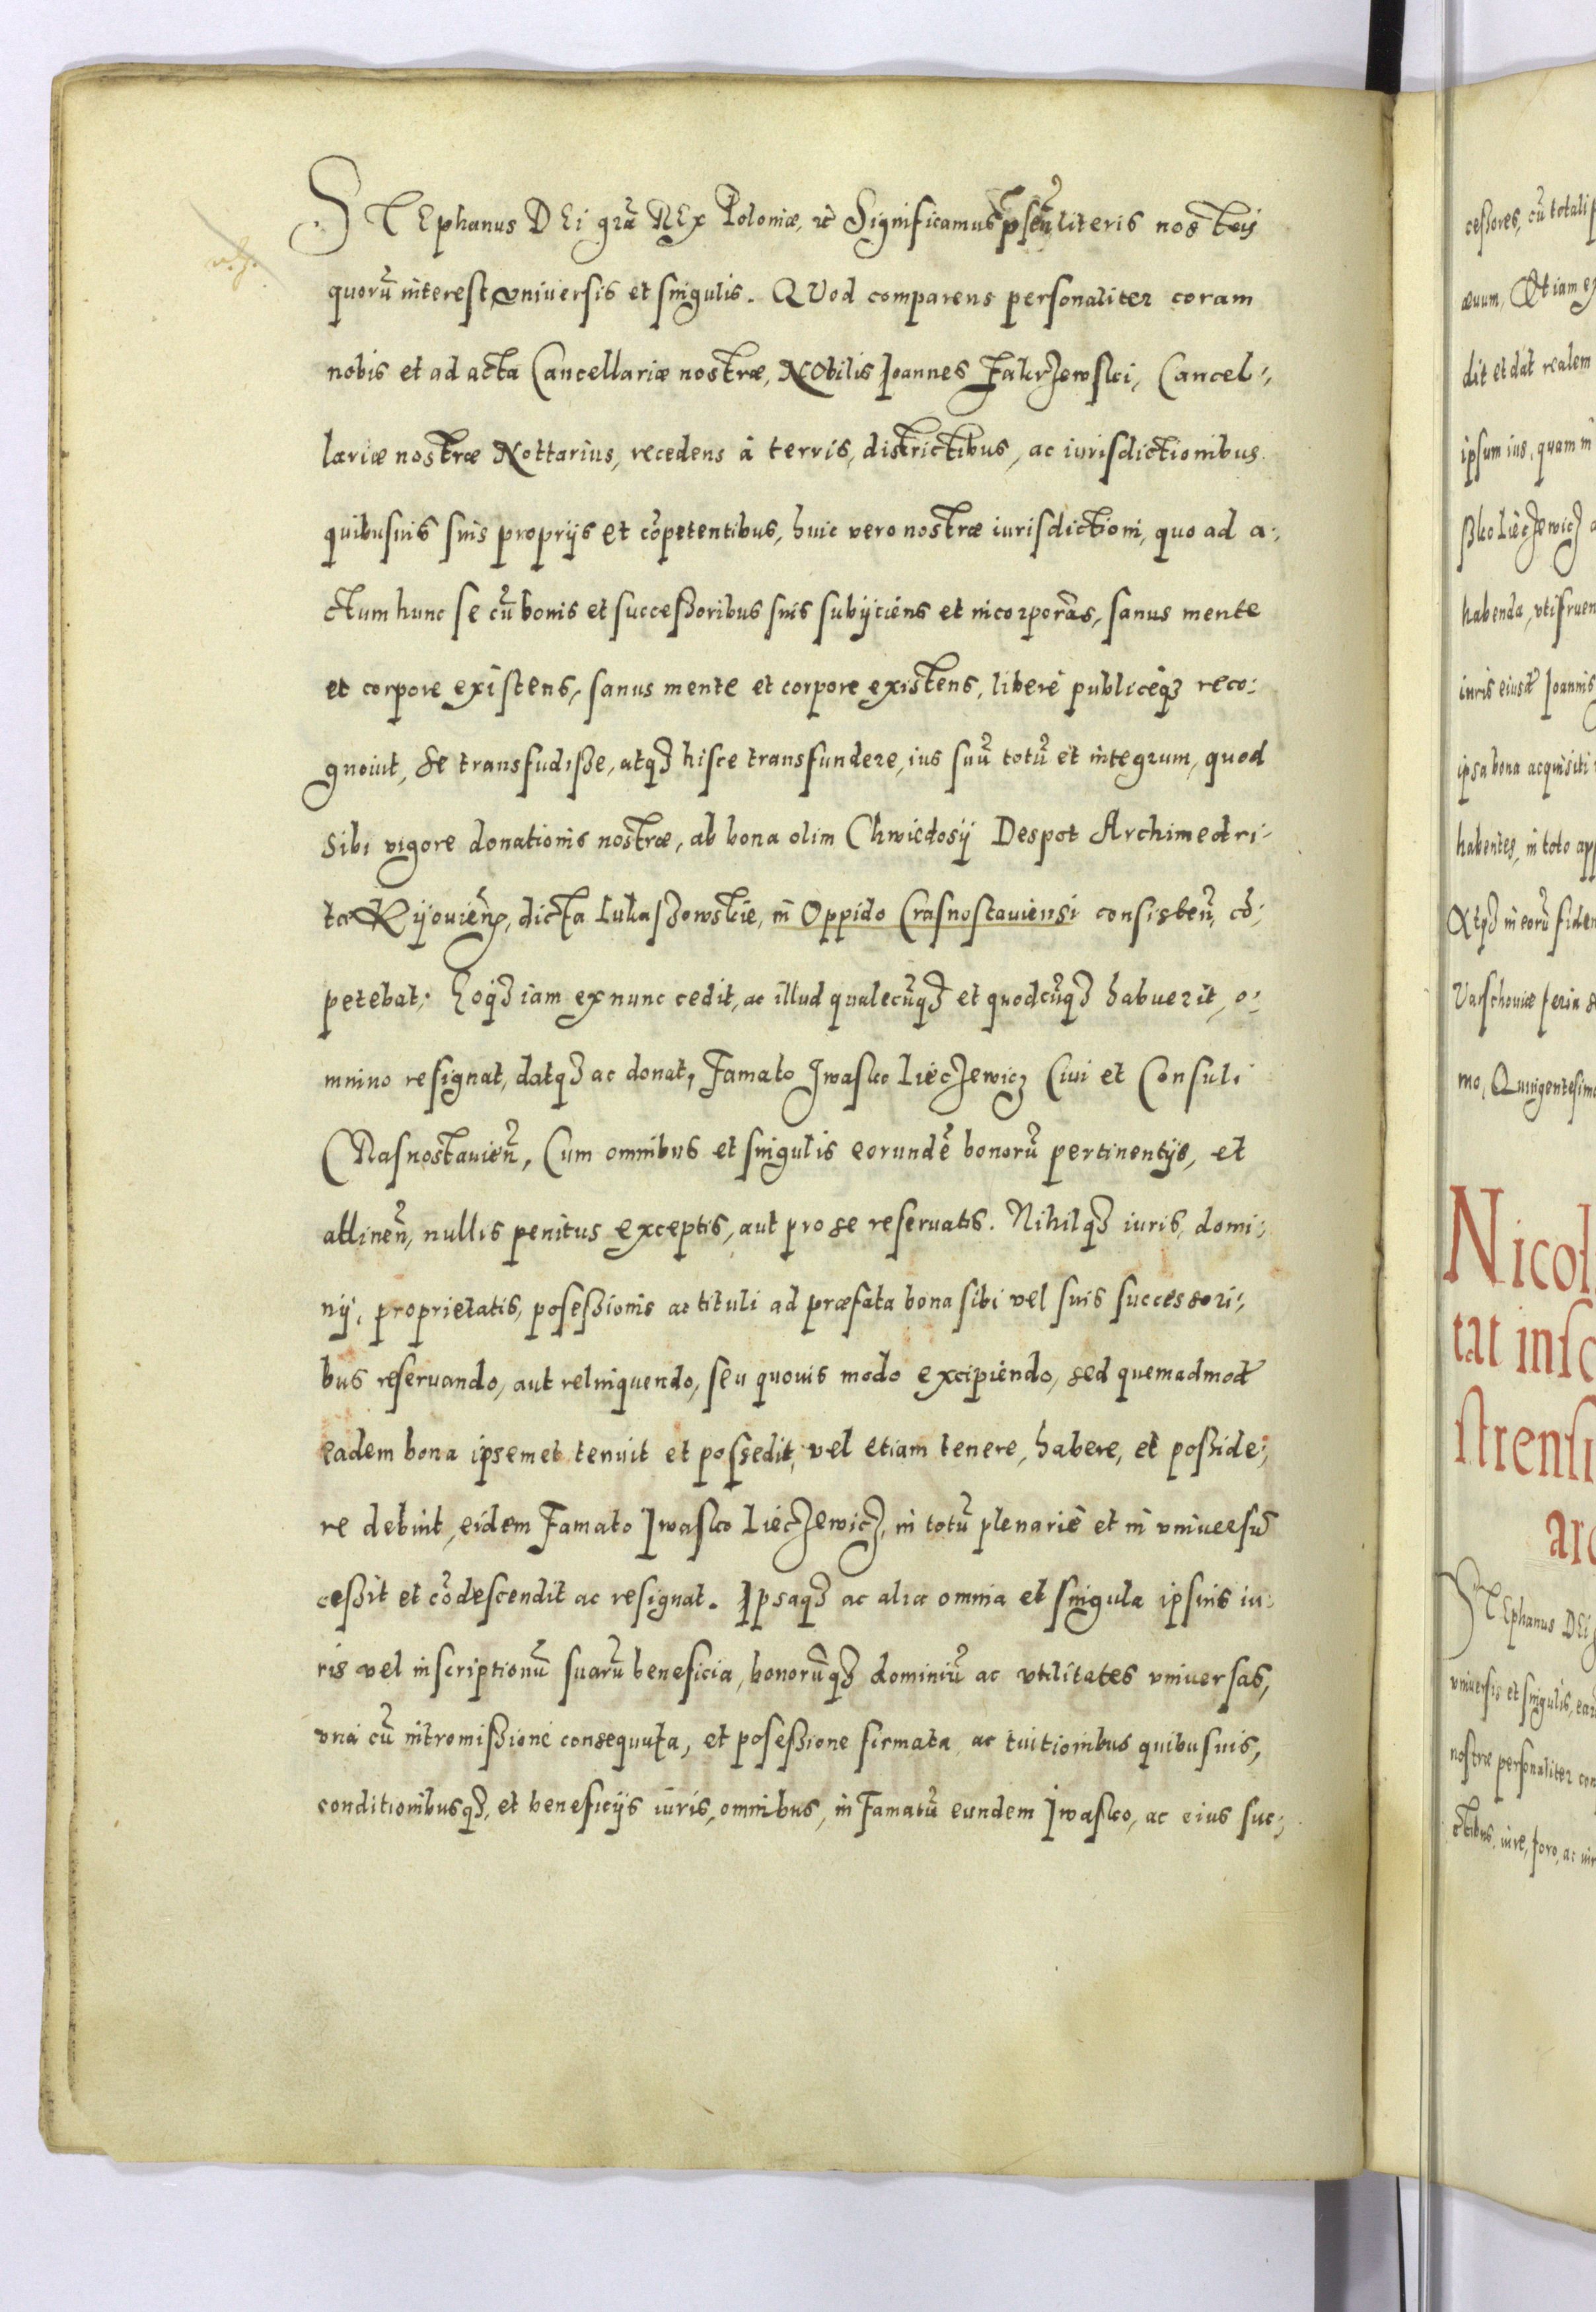 STEphanus DEi grã REx Poloniæ, ꝛc̃ Significamus p̃sẽn literis nostris
quorũ interest vniuersis et singulis. QVod comparens personaliter coram
nobis et ad acta Cancellariæ nostræ, NObilis Joannes Zakrzewski, Cancel:,
lariæ nostræ Nottarius, recedens à terris, districtibus, ac iurisdictionibus
quibusuis suis proprijs et cõpetentibus, huic vero nostræ iurisdictioni, quo ad a:,
ctum hunc se cũ bonis et succeßoribus suis subijciens et incorporãs, sanus mente
et corpore existens, sanus mente et corpore existens, liberè publicèqȝ reco:
gnouit, se transfudiße, atqȝ hisce transfundere, ius suũ totũ et integrum, quod
sibi vigore donationis nostræ, ab bona olim Chwiedosij Despot Archimedri:
tæ Kijouień, dicta Lukaszowskie, in Oppido Crasnostauiensi consisteñ, cõ:
petebat; Eoqȝ iam ex nunc cedit, ac illud qualecũqȝ et quodcũqȝ habuerit, o:
mnino resignat, datqȝ ac donat, Famato Jwasko Liéczewicz Ciui et Consuli
CRasnostauieñ, Cum omnibus et singulis eorundẽ bonorũ pertinentijs, et
attineñ, nullis penitus exceptis, aut pro se reseruatis. Nihilqȝ iuris, domi:,
nij, proprietatis, poseßionis ac tituli ad præfata bona sibi vel suis successori:,
bus reseruando, aut relinquendo, seu quouis modo excipiendo, sed quemadmod̃
eadem bona ipsemet tenuit et possedit, vel etiam tenere, habere, et poßide:,
re debuit, eidem Famato Jwasko Liéczewicz, in totũ plenariè et in vniuersũ
ceßit et cõdescendit ac resignat. Ipsaqȝ ac alia omnia et singula ipsius iu:
ris vel inscriptionũ suarũ beneficia, bonorũqȝ dominiũ ac vtilitates vniuersas,
vnà cũ intromißione consequuta, et poseßione firmata, ac tuitionibus quibusuis,
conditionibusqȝ, et beneficijs iuris, omnibus, in Famatũ eundem Jwasko, ac eius suc:,
ceßores, cũ totali
æuum, Etiam
dit et dat realem
ipsum ius, quam
ßko Liéczewicz
habenda,
iuris eiusd̃ Joannis
ipsa bona acquisiti
habentes, in toto
Atqȝ in eorũ
Varschouiæ feria
mo, Quingentesimo
Nicol
tat insc
strensi
arc
STEphanus DEi
vniuersis et singulis,
nostræ personaliter
ctibus, iure, foro, ac